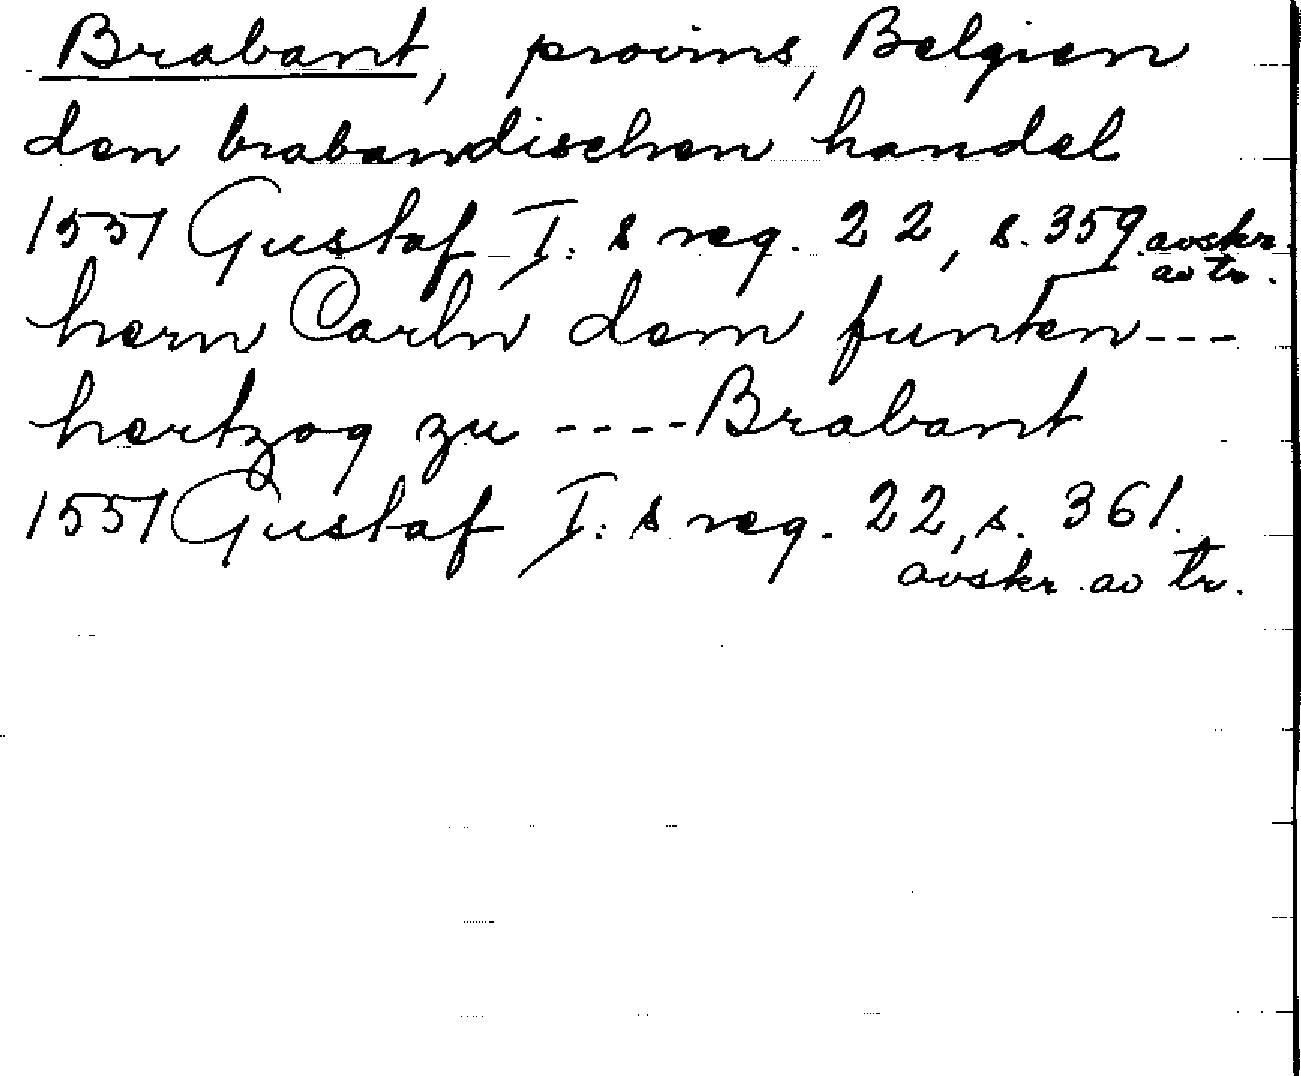 Brabant, provins, Belgien
den brabandischen handel
1551 Gustaf I:s reg. 22, s. 359. avskr.
av tr.
hern Carln dem funten ---
hertzog zu ---- Brabant
1551 Gustaf I:s reg. 22, s. 361.
avskr. av tr.